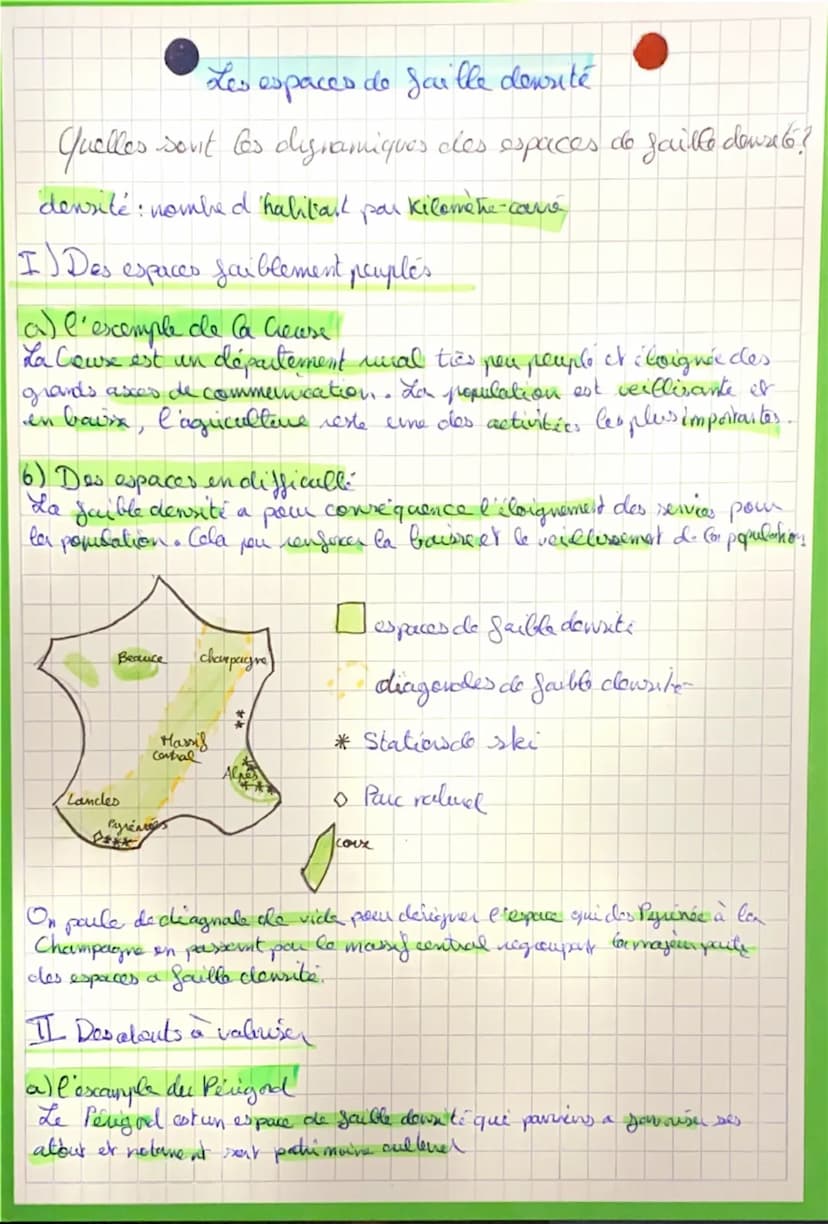 Les espaces de faible densité
Quelles sont les dynamiques des espaces de faible densité?
densité : nombre d'habitant par Kilomètre-carré
I) Des espaces faiblement peuplés
a) l'exemple de la Creuse
La Creuse est un département rural très peu peuplé et éloignée des
grands axes de communication. La population est veillissante et
en baisse, l'agriculture reste une des activités les plus importantes.
b) Des espaces en difficulté
La faible densité a pour conséquence l'éloignement des services pour
la population. Cela peu renforcer la baisse et le veillissement de la population.
Beauce
champagne
Massif
central
Alpes
Landes
Pyrénées
espaces de faible densité
diagonales de faible densité
* Stations de ski
◇ Parc naturel
corse
On parle de diagnale de vide pour désigner l'espace qui des Pyrénée à la
Champagne en passent par le massif central regroupent la majeur partie
des espaces a faible densité.
II Des atouts à valoriser
a) l'exemple du Périgord
Le Périgord est un espace de faible densité qui parviens a favoriser ses
atout et notament sont patrimoine culturel